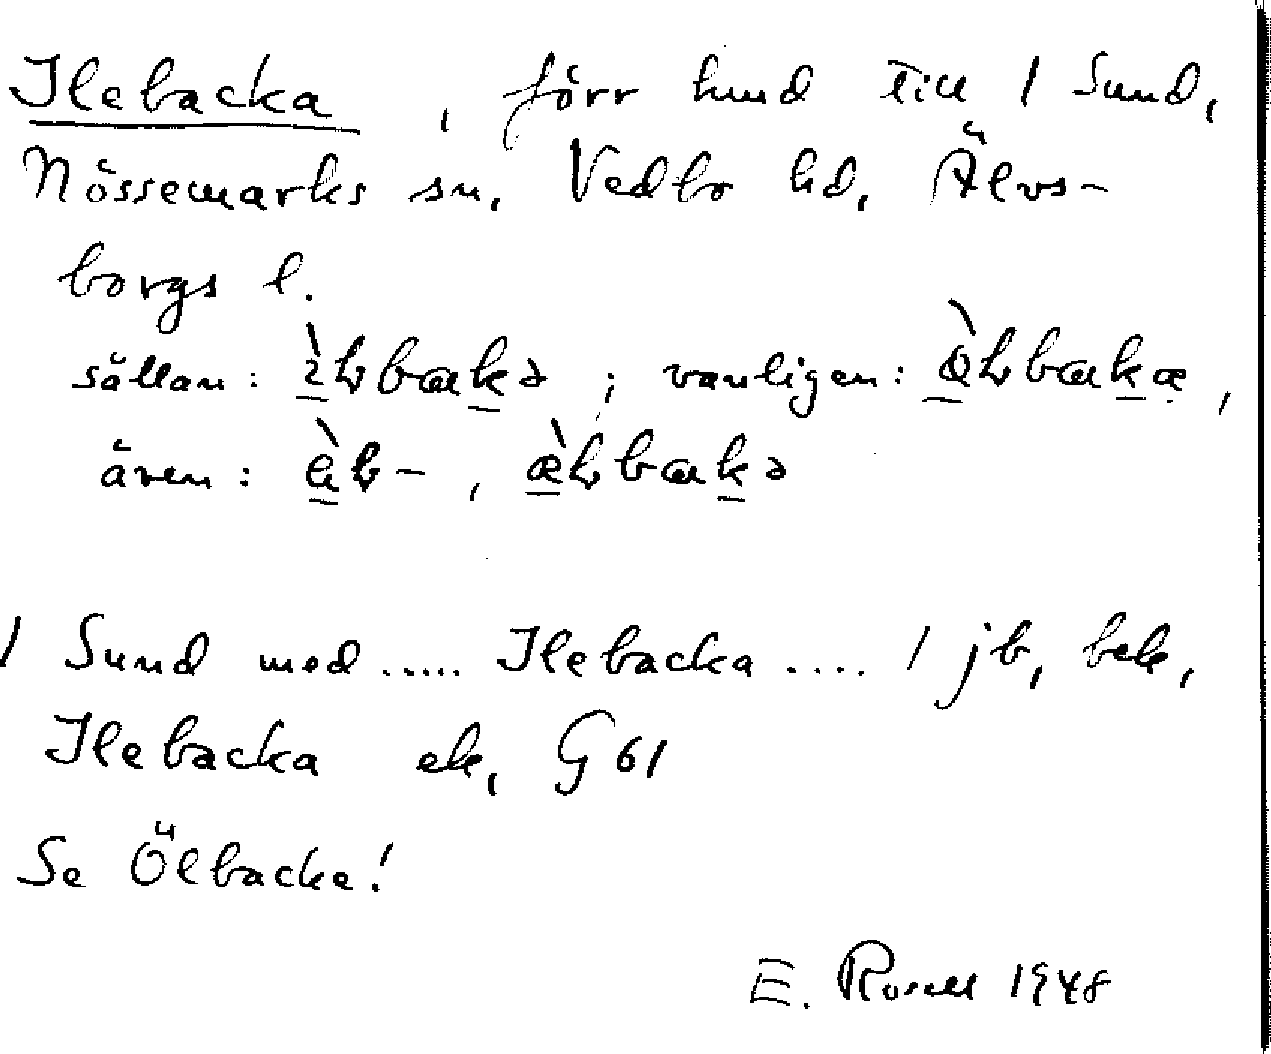 Ilebacka, förr hmd till 1 Sund,
Nössemarks sn, Vedbo hd, Älvs-
borgs l.
sällan: ; vanligen: ,
även: ,
1 Sund med ..... Ilebacka .... 1 jb, bek,
Ilebacka ek, G 61
Se Ölbacka!
E. Rosell 1948